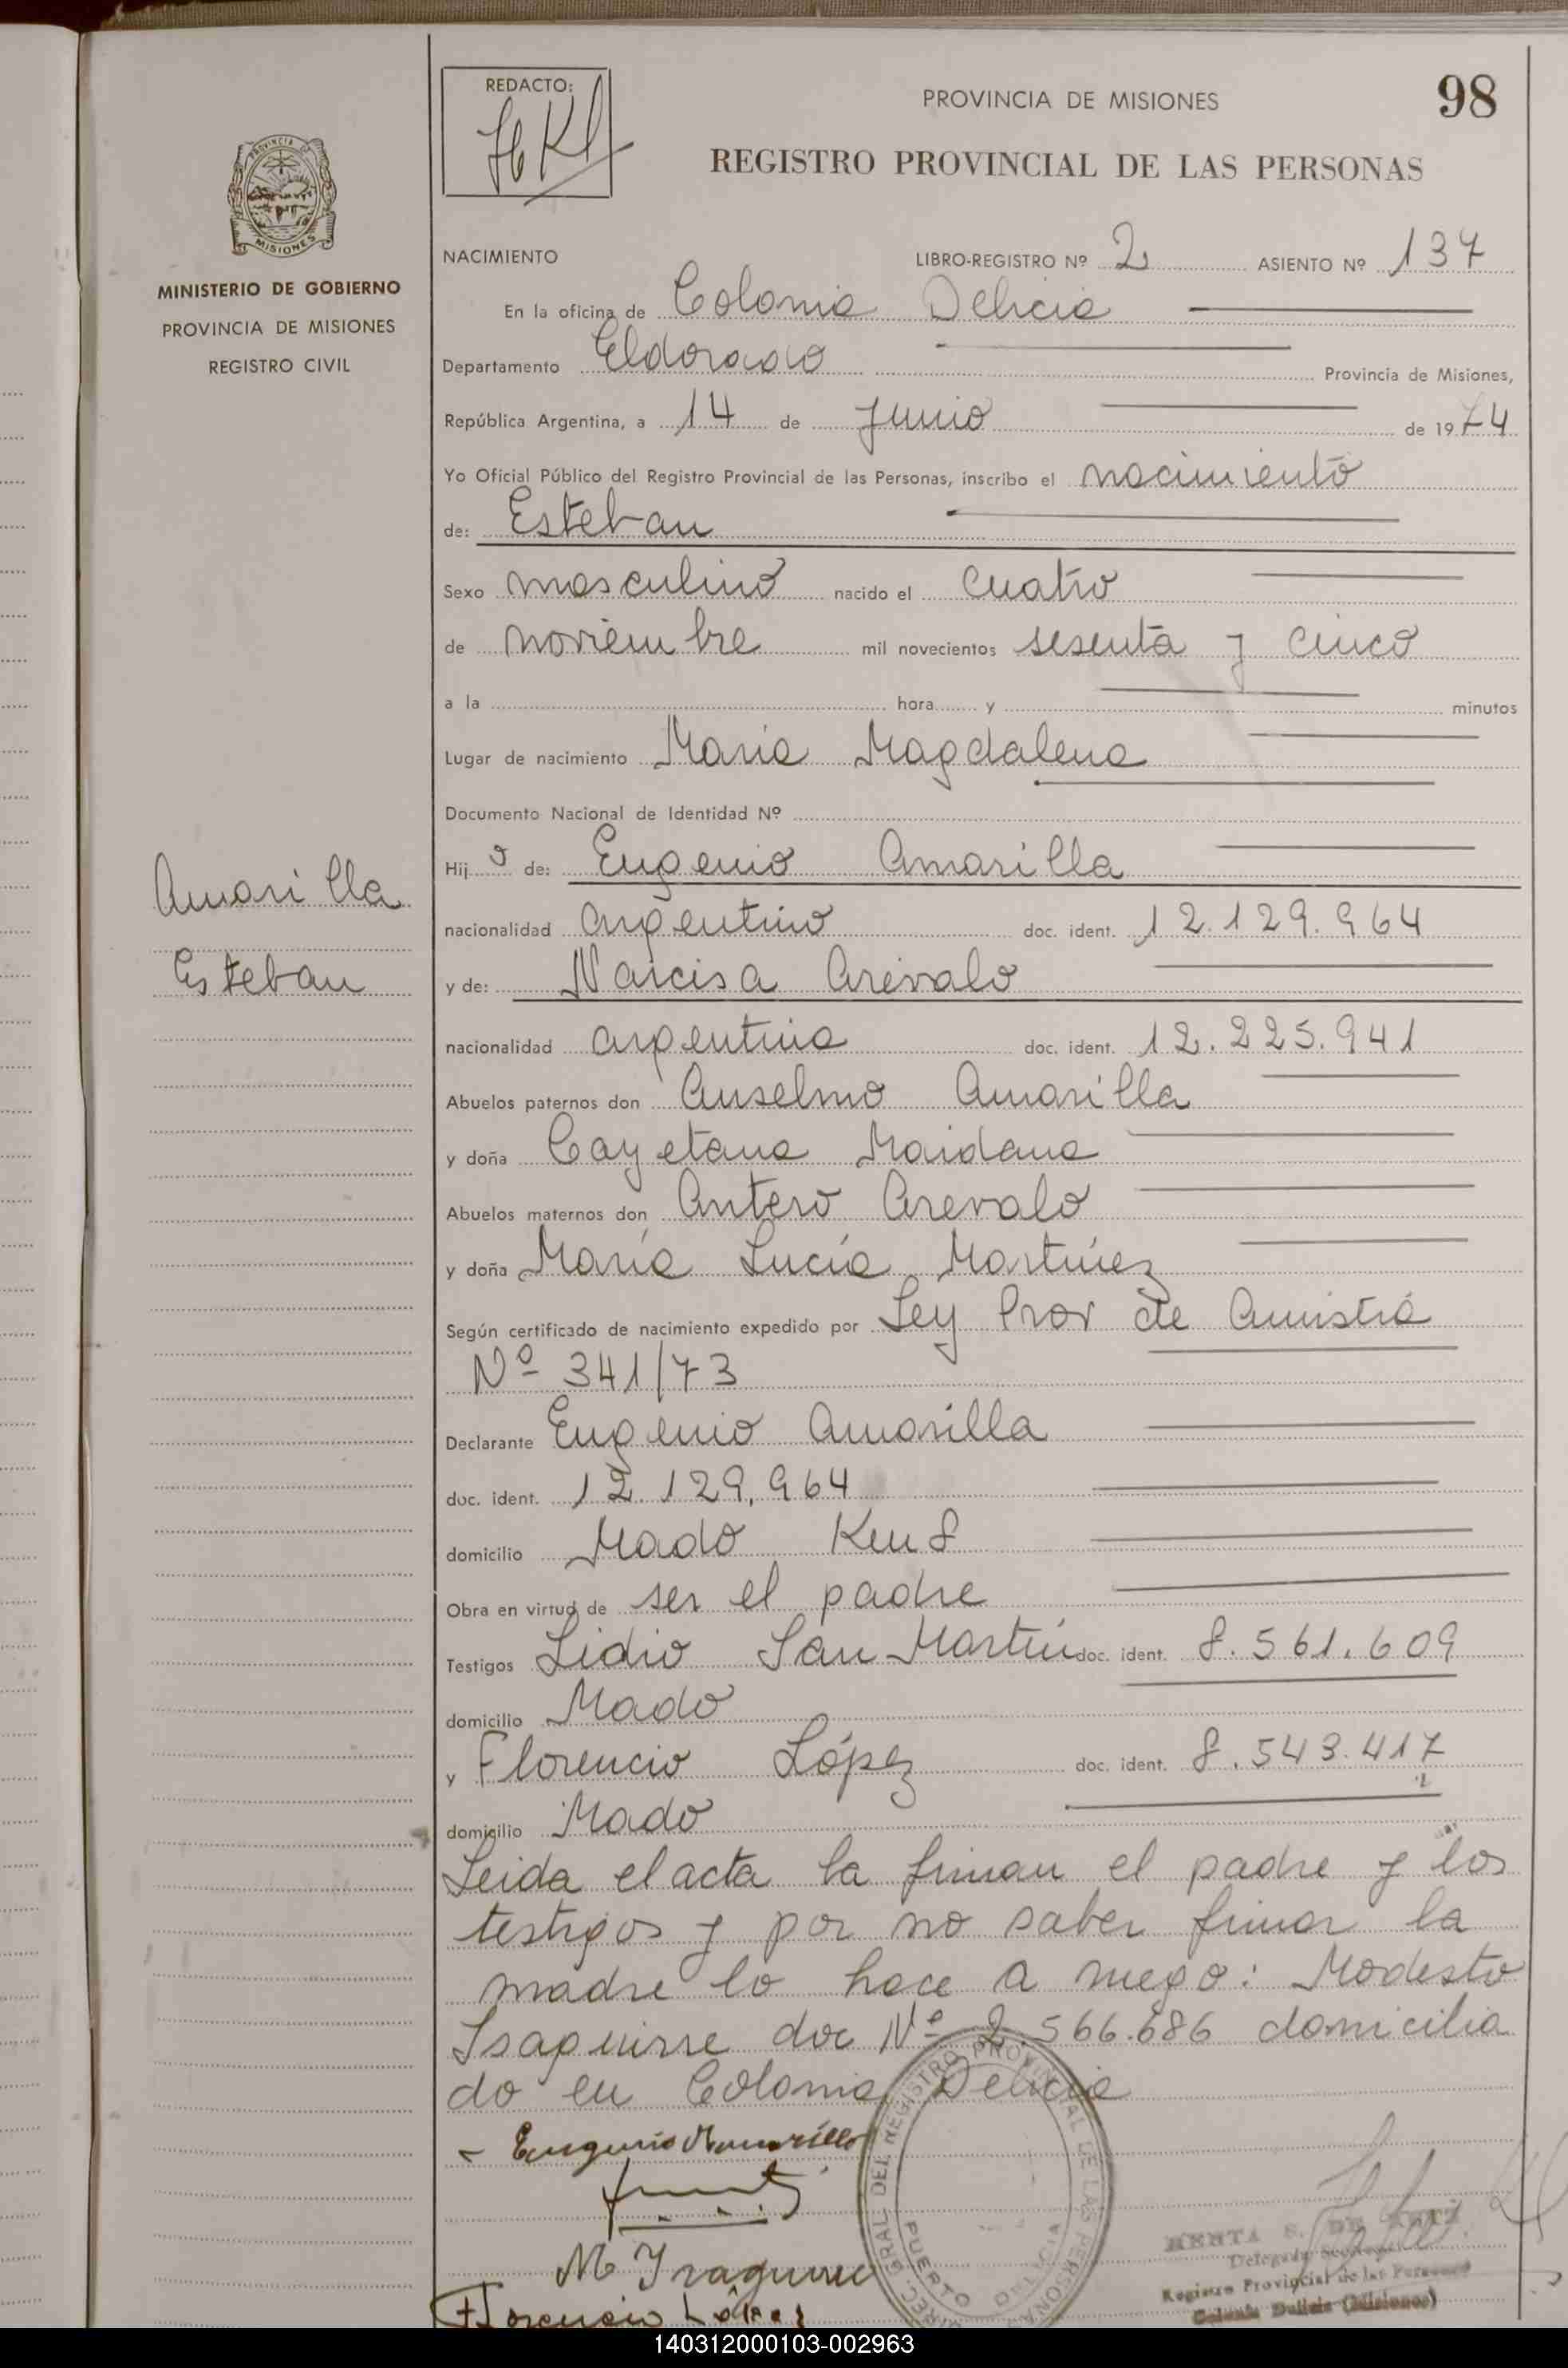 98
REDACTO:
PROVINCIA DE MISIONES
REGISTRO PROVINCIAL DE LAS PERSONAS
PROVINCIA DE
MISIONES
MINISTERIO DE GOBIERNO
PROVINCIA DE MISIONES
REGISTRO CIVIL
NACIMIENTO LIBRO-REGISTRO Nº 2 ASIENTO Nº 137
En la oficina de Colonia Delicia
Departamento Eldorado Provincia de Misiones,
República Argentina, a 14 de Junio de 1974
Yo Oficial Público del Registro Provincial de las Personas, inscribo el nacimiento
de: Esteban
Sexo masculino nacido el cuatro
de noviembre mil novecientos sesenta y cinco
a la hora y minutos
Lugar de nacimiento María Magdalena
Documento Nacional de Identidad Nº
Hijo de: Eugenio Amarilla
Amarilla
nacionalidad argentino doc. ident. 12.129.964
Esteban
y de: Narcisa Arévalo
nacionalidad argentina doc. ident. 12.225.941
Abuelos paternos don Anselmo Amarilla
y doña Cayetana Maidana
Abuelos maternos don Antero Arevalo
y doña María Lucía Martínez
Según certificado de nacimiento expedido por Ley Prov de Amnistía
Nº 341/73
Declarante Eugenio Amarilla
doc. ident. 12.129.964
domicilio Mado Km 8
Obra en virtud de ser el padre
Testigos Lidio San Martín doc. ident. 8.561.609
domicilio Mado
y Florencio López doc. ident. 8.543.417
domicilio Mado
Leida el acta la firman el padre y los
testigos y por no saber firmar la
madre lo hace a ruego: Modesto
Isaguirre doc Nº 2.566.686 domicilia
do en Colonia Delicia
Eugenio Amarilla
M Isaguirre
Florencio López
DIREC. GRAL. DEL REGISTRO PROVINCIAL DE LAS PERSONAS
PUERTO DELICIA
Registro Provincial de las Personas
Colonia Delicia (Misiones)
140312000103-002963